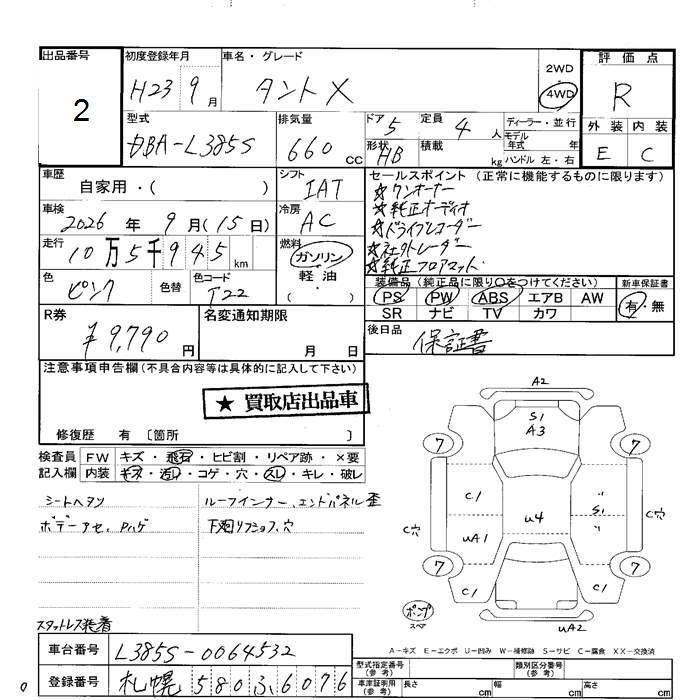 出品番号 初度登録年月 車名・グレード 評価点
2 H23 9月 タントX 2WD 4WD R
型式 排気量 ドア 定員 ディーラー・並行 外装 内装
DBA-L385S 660cc 5 4人 モデル年式 年 E C
形状 HB 積載 kg ハンドル 左・右
車歴 シフト セールスポイント (正常に機能するものに限ります)
自家用・( ) IAT ★ワンオーナー
車検 冷房 ★純正オーディオ
2026年 9月(15日) AC ★ドライブレコーダー
走行 燃料
10万5千945km ガソリン ★純正フロアマット
色 色替 色コード 軽油
ピンク T22 ( )
装備品 (純正品に限り○をつけてください) 新車保証書
PS PW ABS エアB AW 有・無
SR ナビ TV カワ
R券 名変通知期限 後日品
¥9,790円 月 日 保証書
注意事項申告欄(不具合内容等は具体的に記入して下さい)
★ 買取店出品車
修復歴 有 〔箇所 〕
検査員 FW キズ・飛石・ヒビ割・リペア跡・×要
記入欄 内装 キズ・汚レ・コゲ・穴・スレ・キレ・破レ
シートヘタリ ルーフインナー、エンドパネル歪
ボデーアセ、Pハゲ 下廻リフショク、穴
スタットレス装着
A2
S1
A3
7 7
C1 〃
C穴 S1 C穴
UA1 U4 〃
7 7
C1 C1
ポンプ
スペア UA2
A-キズ E-エクボ U-凹み W-補修跡 S-サビ C-腐食 XX-交換済
車台番号 L385S-0064532
型式指定番号(参考) 類別区分番号(参考)
登録番号 札幌 580 ふ 6076
車庫証明用(参考) 長さ cm 幅 cm 高さ cm
0